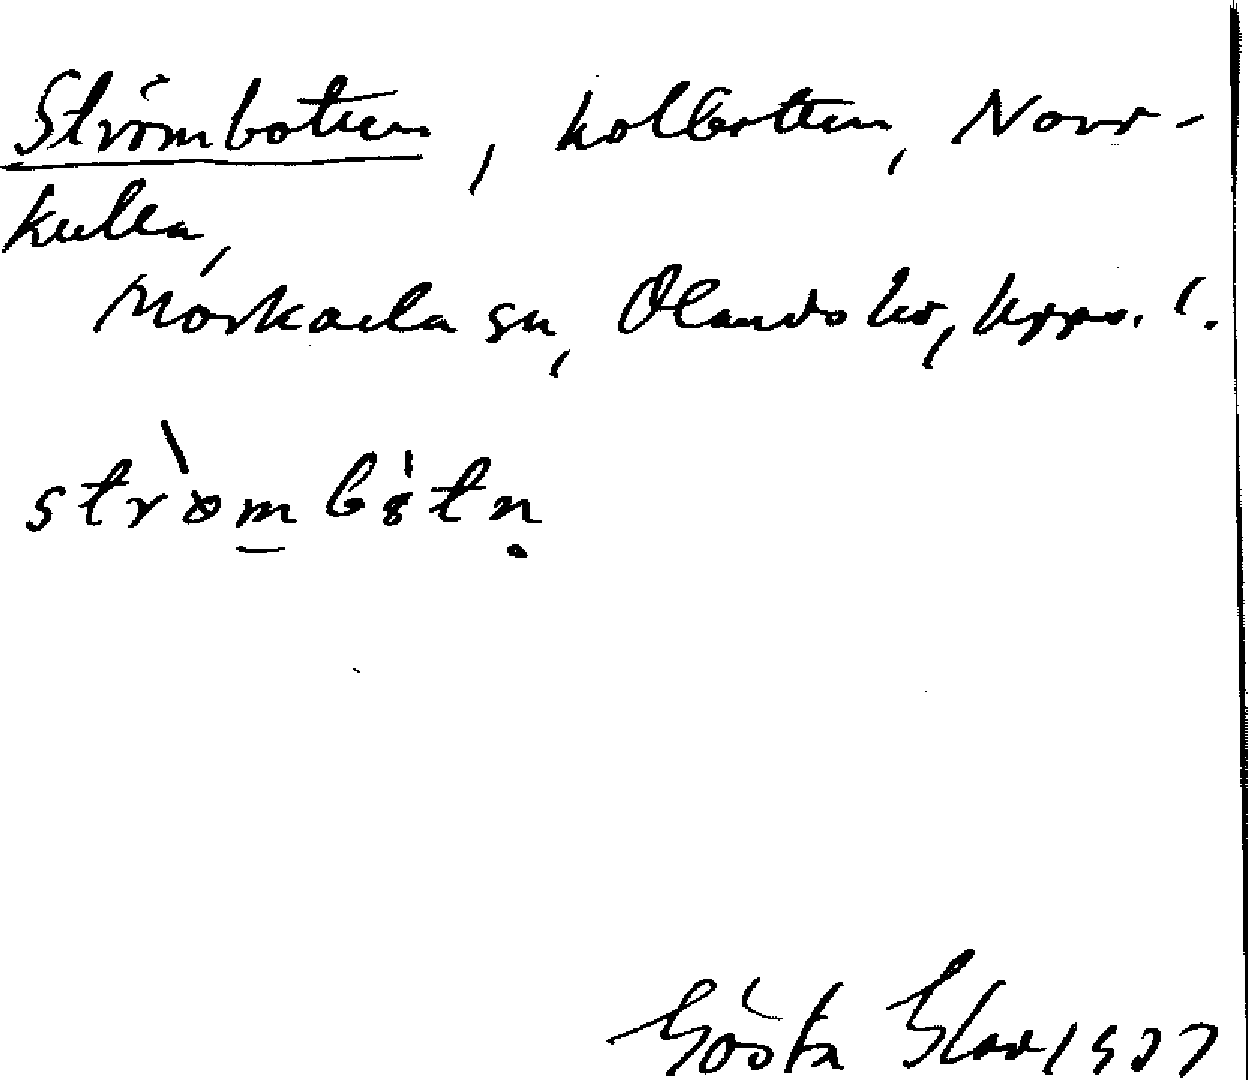 Strömbotten, kolbotten, Norr-
kulla,
Morkarla sn, Olands hd, Upps. l.
strömbotn
Gösta Elav 1937